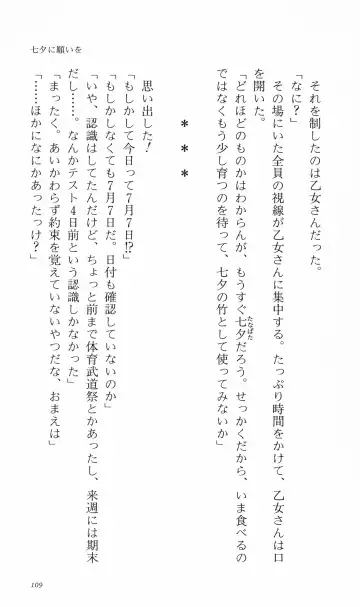 七夕に願いを
それを制したのは乙女さんだった。
「なに?」
その場にいた全員の視線が乙女さんに集中する。たっぷり時間をかけて、乙女さんは口
を開いた。
「どれほどのものかはわからんが、もうすぐ七夕だろう。せっかくだから、いま食べるの
たなばた
ではなくもう少し育つのを待って、七夕の竹として使ってみないか」
＊　＊　＊
思い出した!
「もしかして今日って7月7日!?」
「もしかしなくても7月7日だ。日付も確認していないのか」
「いや、認識はしてたんだけど、ちょっと前まで体育武道祭とかあったし、来週には期末
だし……。なんかテスト4日前という認識しかなかった」
「まったく。あいかわらず約束を覚えていないやつだな、おまえは」
「……ほかになにかあったっけ?」
109